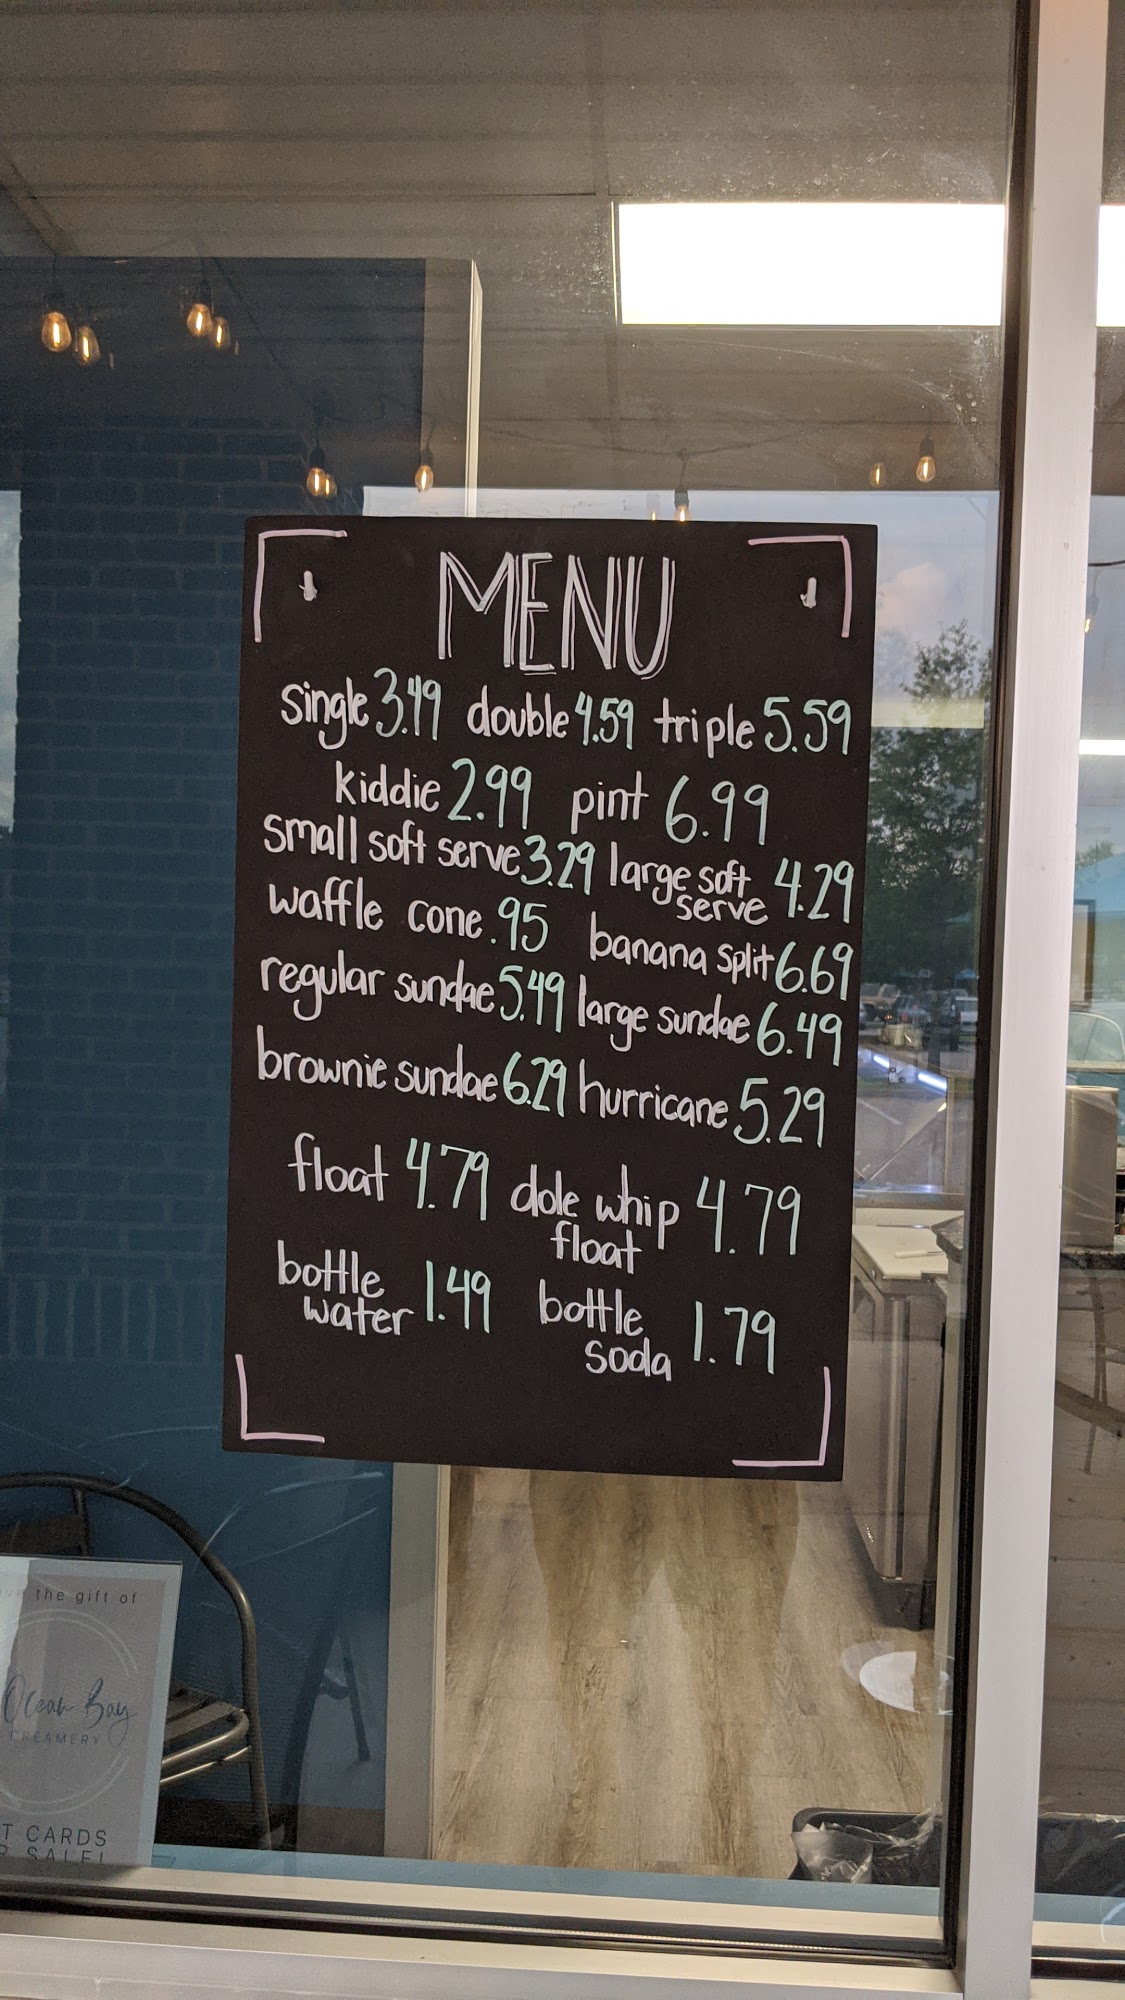 MENU
single 3.49 double 4.59 triple 5.59
kiddie 2.99 pint 6.99
small soft serve 3.29 large soft serve 4.29
waffle cone .95 banana split 6.69
regular sundae 5.49 large sundae 6.49
brownie sundae 6.29 hurricane 5.29
float 4.79 dole whip float 4.79
bottle water 1.49 bottle soda 1.79
the gift of
Ocean Bay
CREAMERY
CARDS
SALE!